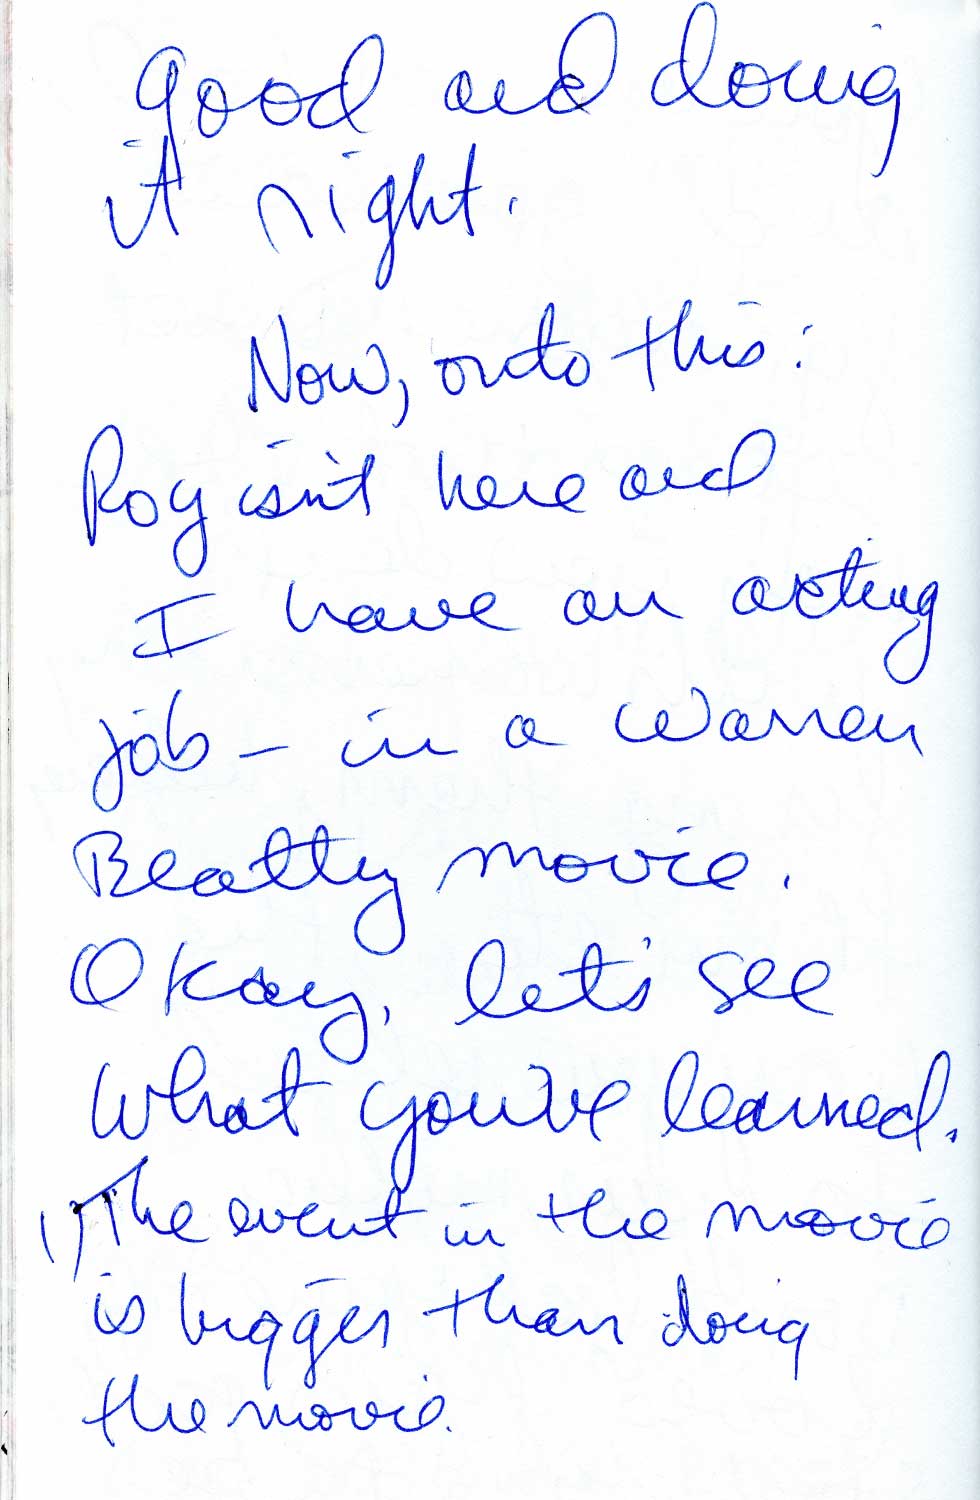 good and doing
it right.
Now, onto this:
Roy isn't here and
I have an acting
job – in a Warren
Beatty movie.
Okay, let's see
what you've learned.
1) The event in the movie
is bigger than doing
the movie.